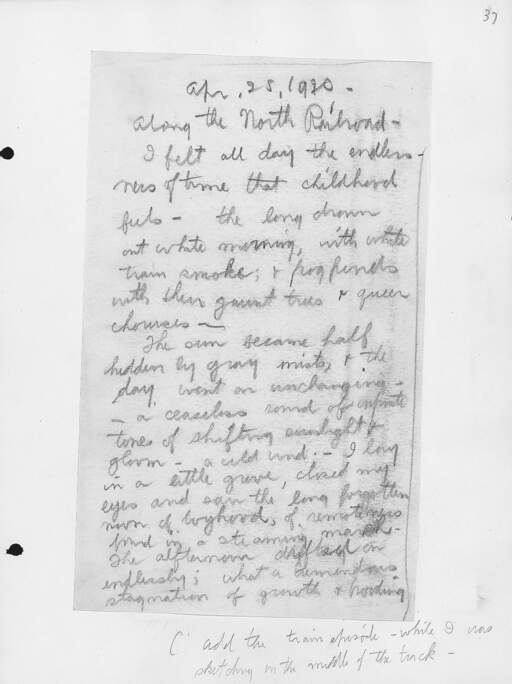 37
Apr. 25, 1920 -
Along the North Railroad -
I felt all day the endless-
ness of time that childhood
feels - the long drawn
out white morning, with white
train smoke; & frog ponds
with their gaunt trees & queer
chouses -
The sun became half
hidden by gray mists, & the
day went on unchanging -
- a ceaseless round of infinite
tones of shifting sunlight &
gloom - a cold wind. - I lay
in a little grove, closed my
eyes and saw the long forgotten
noon of boyhood, of remoteness
in a steaming marsh.
The afternoon drifted on
endlessly; what a tremendous
stagnation of growth & brooding
( add the train episode - while I was
sketching in the middle of the track -